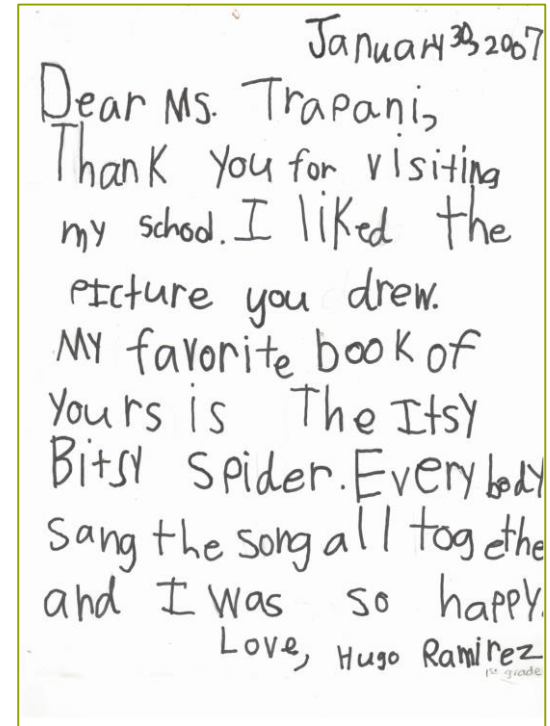 January 30, 2007
Dear Ms. Trapani,
Thank you for visiting
my school. I liked the
picture you drew.
My favorite book of
Yours is The Itsy
Bitsy Spider. Everybody
sang the song all togethe
and I was so happy.
Love, Hugo Ramirez
1st grade